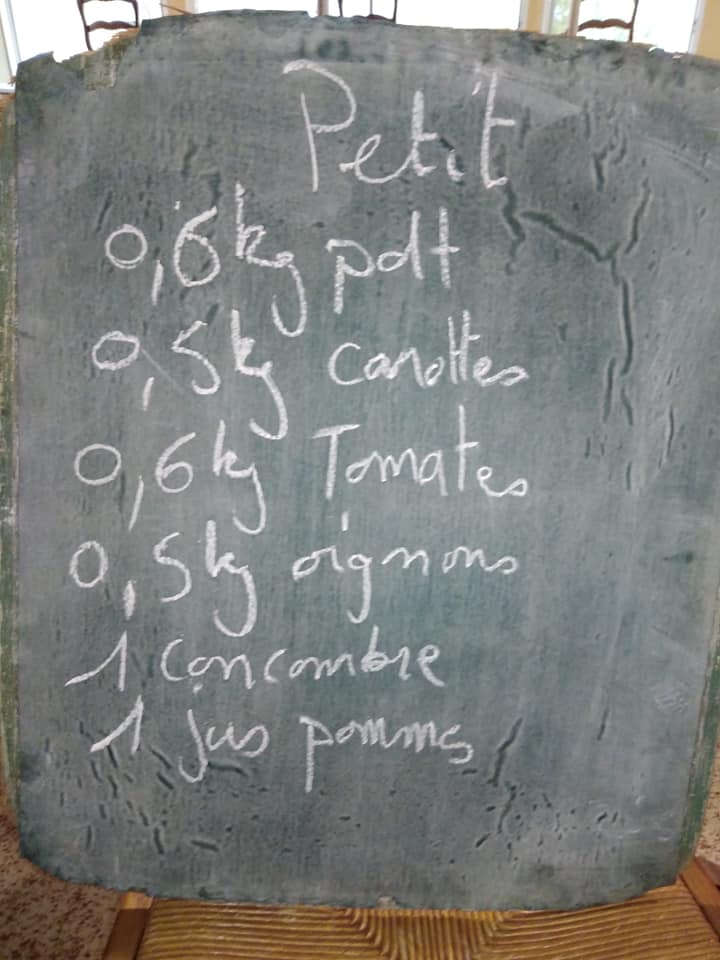 Petit
0,6kg pdt
0,5kg carottes
0,6kg Tomates
0,5kg oignons
1 concombre
1 jus pommes